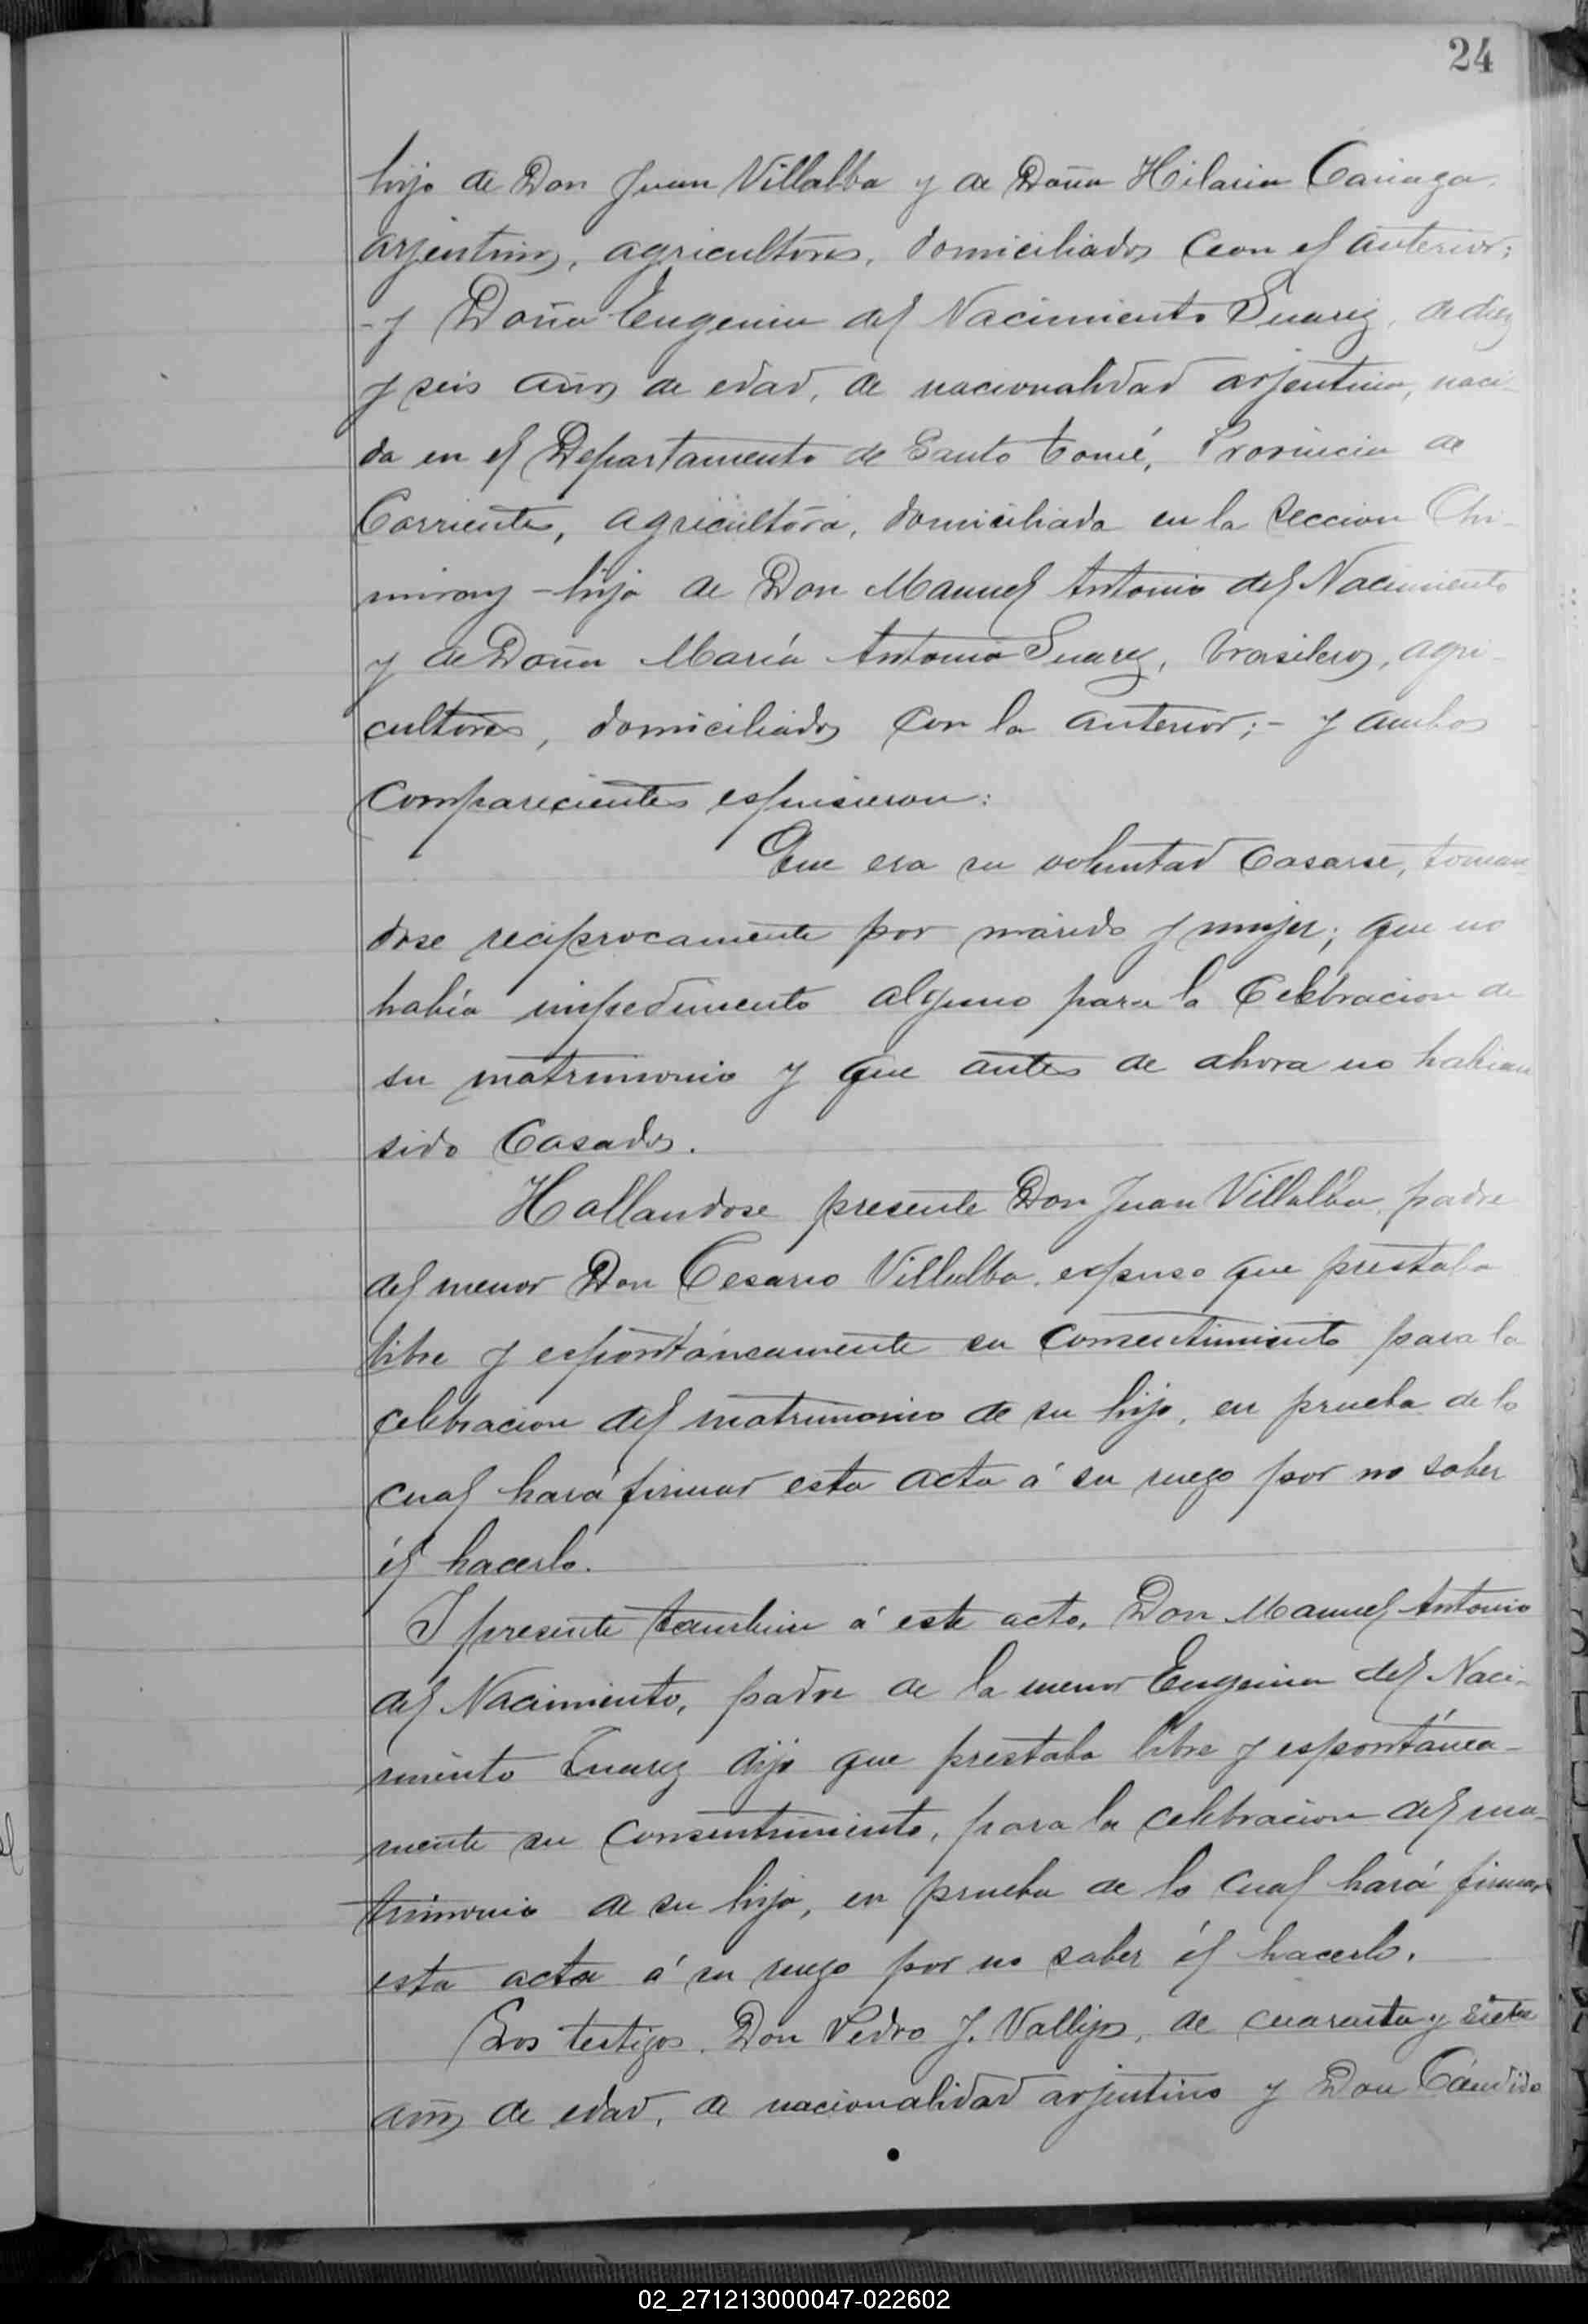 24
hijo de Don Juan Villalba y de Doña Hilaria Cariaga,
arjentinos, agricultores, domiciliados con el anterior;
- y Doña Eugenia del Nacimiento Suarez, de diez
y seis años de edad, de nacionalidad arjentina, naci-
da en el Departamento de Santo Tomé, Provincia de
Corrientes, agricultora, domiciliada en la seccion Chi-
miray - hija de Don Manuel Antonio del Nacimiento
y de Doña María Antonia Suarez, brasileros, agri-
cultores, domiciliados con la anterior; - y ambos
comparecientes espusieron:
Que era su voluntad casarse, toman
dose reciprocamente por marido y mujer; que no
había impedimento alguno para la celebracion de
su matrimonio y que antes de ahora no habian
sido casados.
Hallandose presente Don Juan Villalba, padre
del menor Don Cesareo Villalba, espuso que prestaba
libre y espontáneamente su consentimiento para la
celebracion del matrimonio de su hijo, en prueba de lo
cual hará firmar esta acta á su ruego por no saber
él hacerlo.
I presente tambien á este acto, Don Manuel Antonio
del Nacimiento, padre de la menor Eugenia del Naci-
miento Suarez dijo que prestaba libre y espontánea-
mente su consentimiento, para la celebracion del ma-
trimonio de su hija, en prueba de lo cual hará firmar
esta acta á su ruego por no saber él hacerlo.
Los testigos, Don Pedro J. Vallejos, de cuarenta y siete
años de edad, de nacionalidad arjentino y Don Cándido
02_271213000047-022602